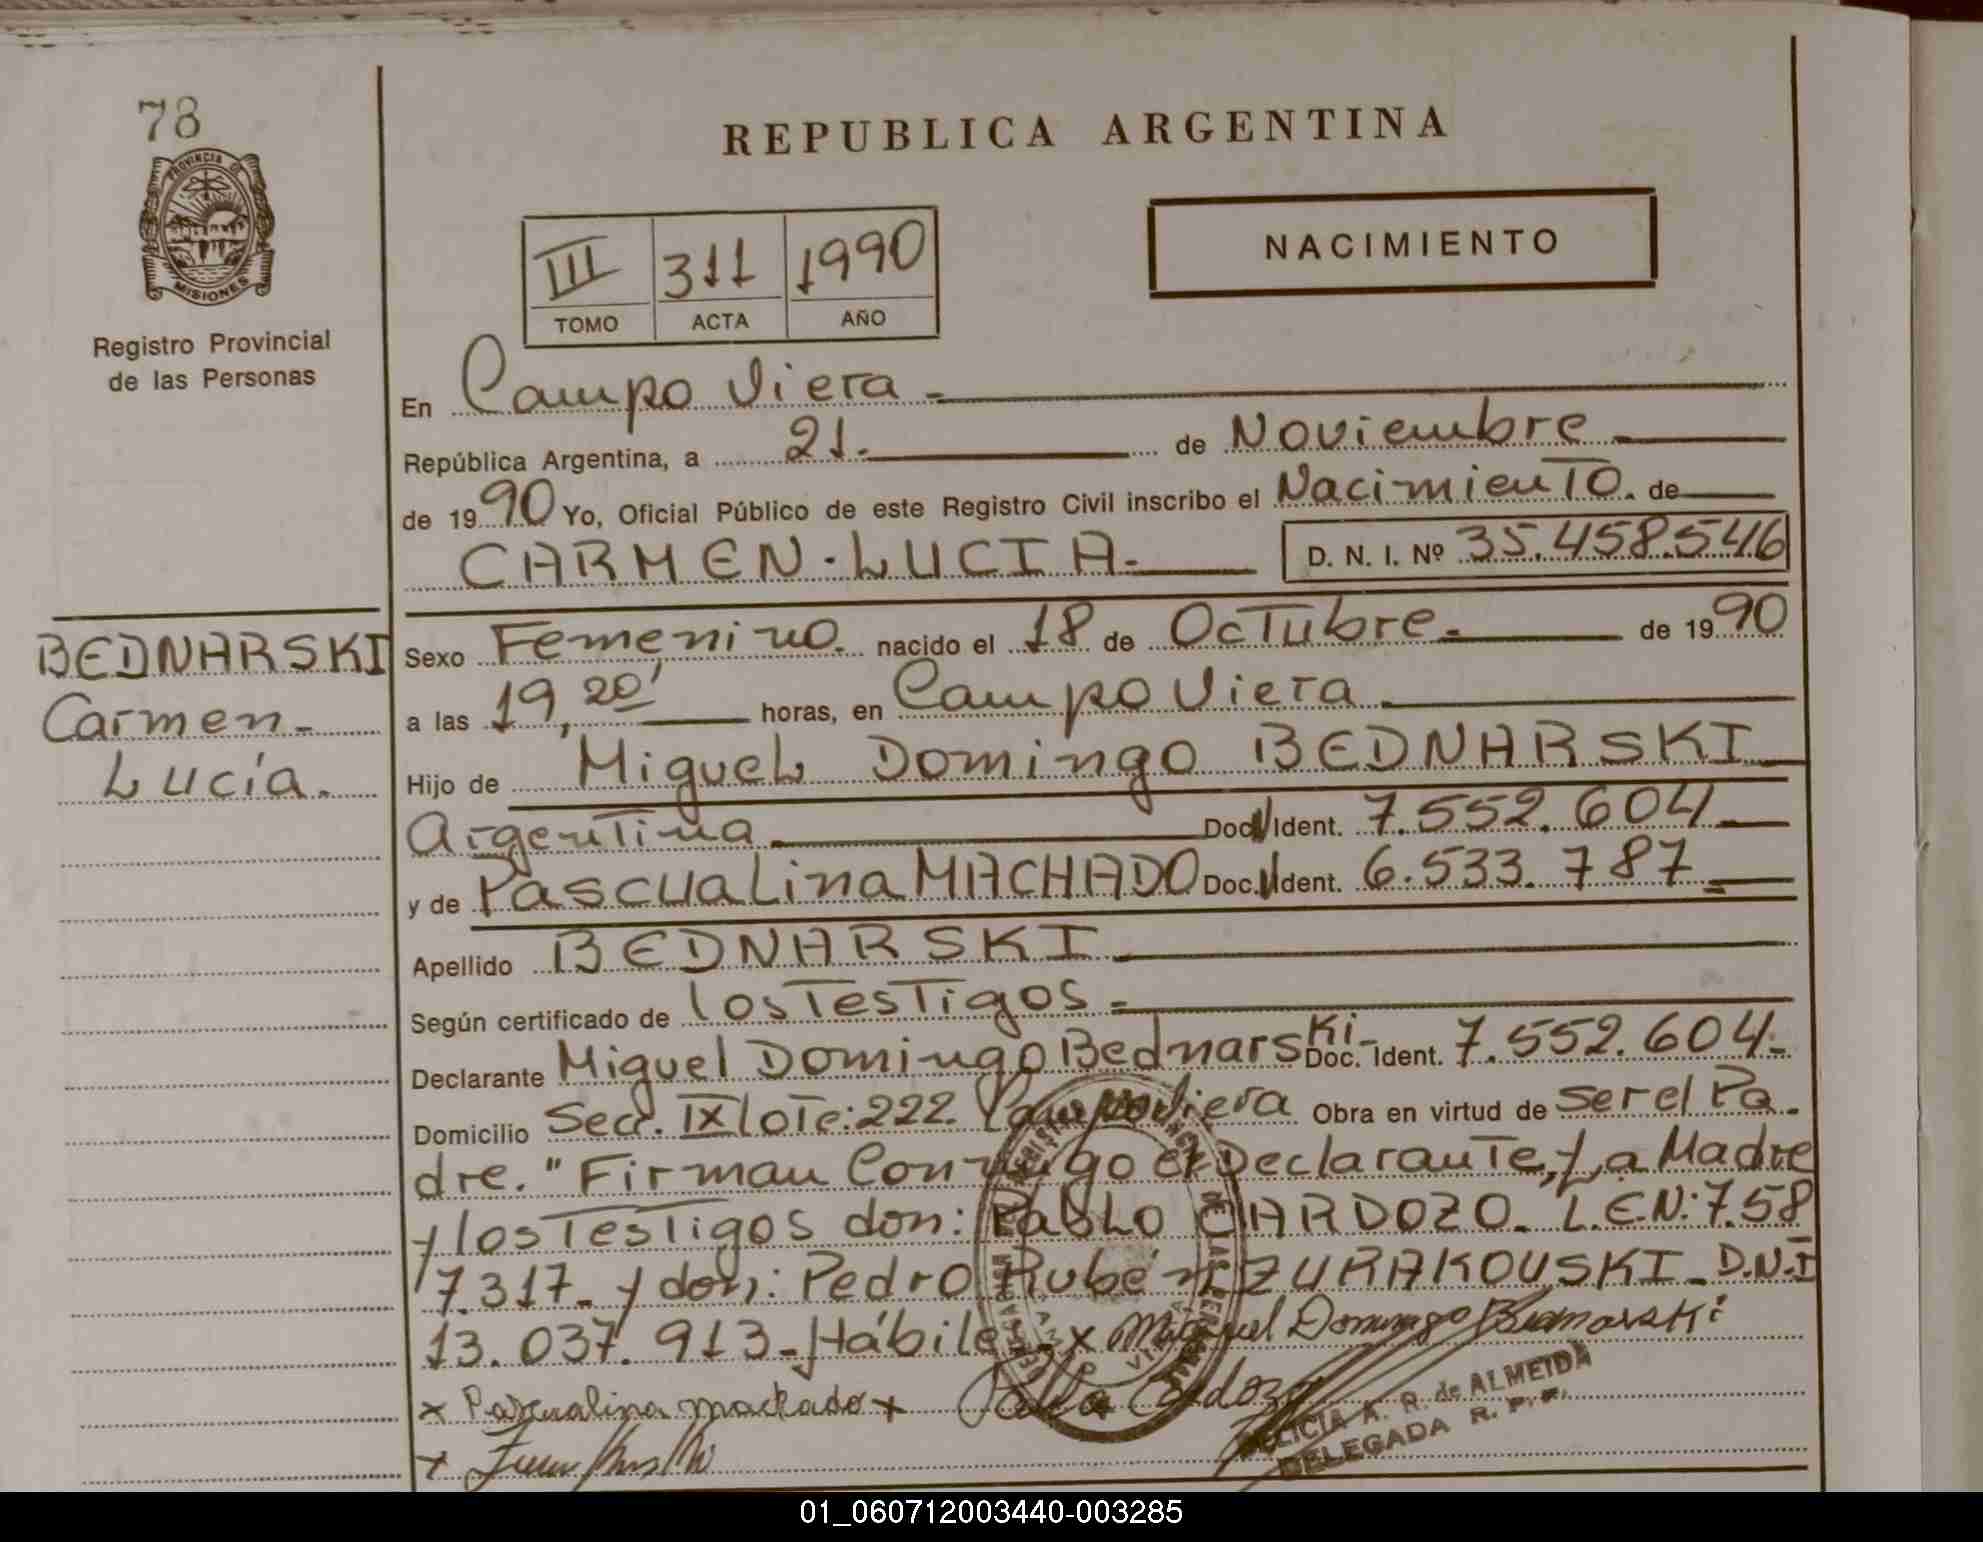 78
PROVINCIA DE
MISIONES
Registro Provincial
de las Personas
REPUBLICA ARGENTINA
III 311 1990
TOMO ACTA AÑO
NACIMIENTO
En Campo Viera.-
República Argentina, a 21.- de Noviembre
de 1990 Yo, Oficial Público de este Registro Civil inscribo el Nacimiento. de
CARMEN-LUCIA.- D. N. I. Nº 35.458.546
BEDNARSKI
Carmen-
Lucía.
Sexo Femenino. nacido el 18 de Octubre.- de 1990
a las 19,20' horas, en Campo Viera
Hijo de Miguel Domingo BEDNARSKI
Argentina Doc. Ident. 7.552.604
y de Pascualina MACHADO Doc. Ident. 6.533.787
Apellido BEDNARSKI
Según certificado de los Testigos.-
Declarante Miguel Domingo Bednarski- Doc. Ident. 7.552.604.-
Domicilio Secc. IX lote: 222. Campo Viera Obra en virtud de ser el Pa-
dre. "Firman Conmigo el Declarante, La Madre
y los Testigos don: Pablo CARDOZO. L.E.N: 7.58
7.317.- y don: Pedro Rubén ZURAKOUSKI- D.N.I
13.037.913-Hábiles x Miguel Domingo Bednarski
x Pascualina Machado x Pablo Cardozo
FELICIA A. R. de ALMEIDA
DELEGADA R. P. P.
01_060712003440-003285